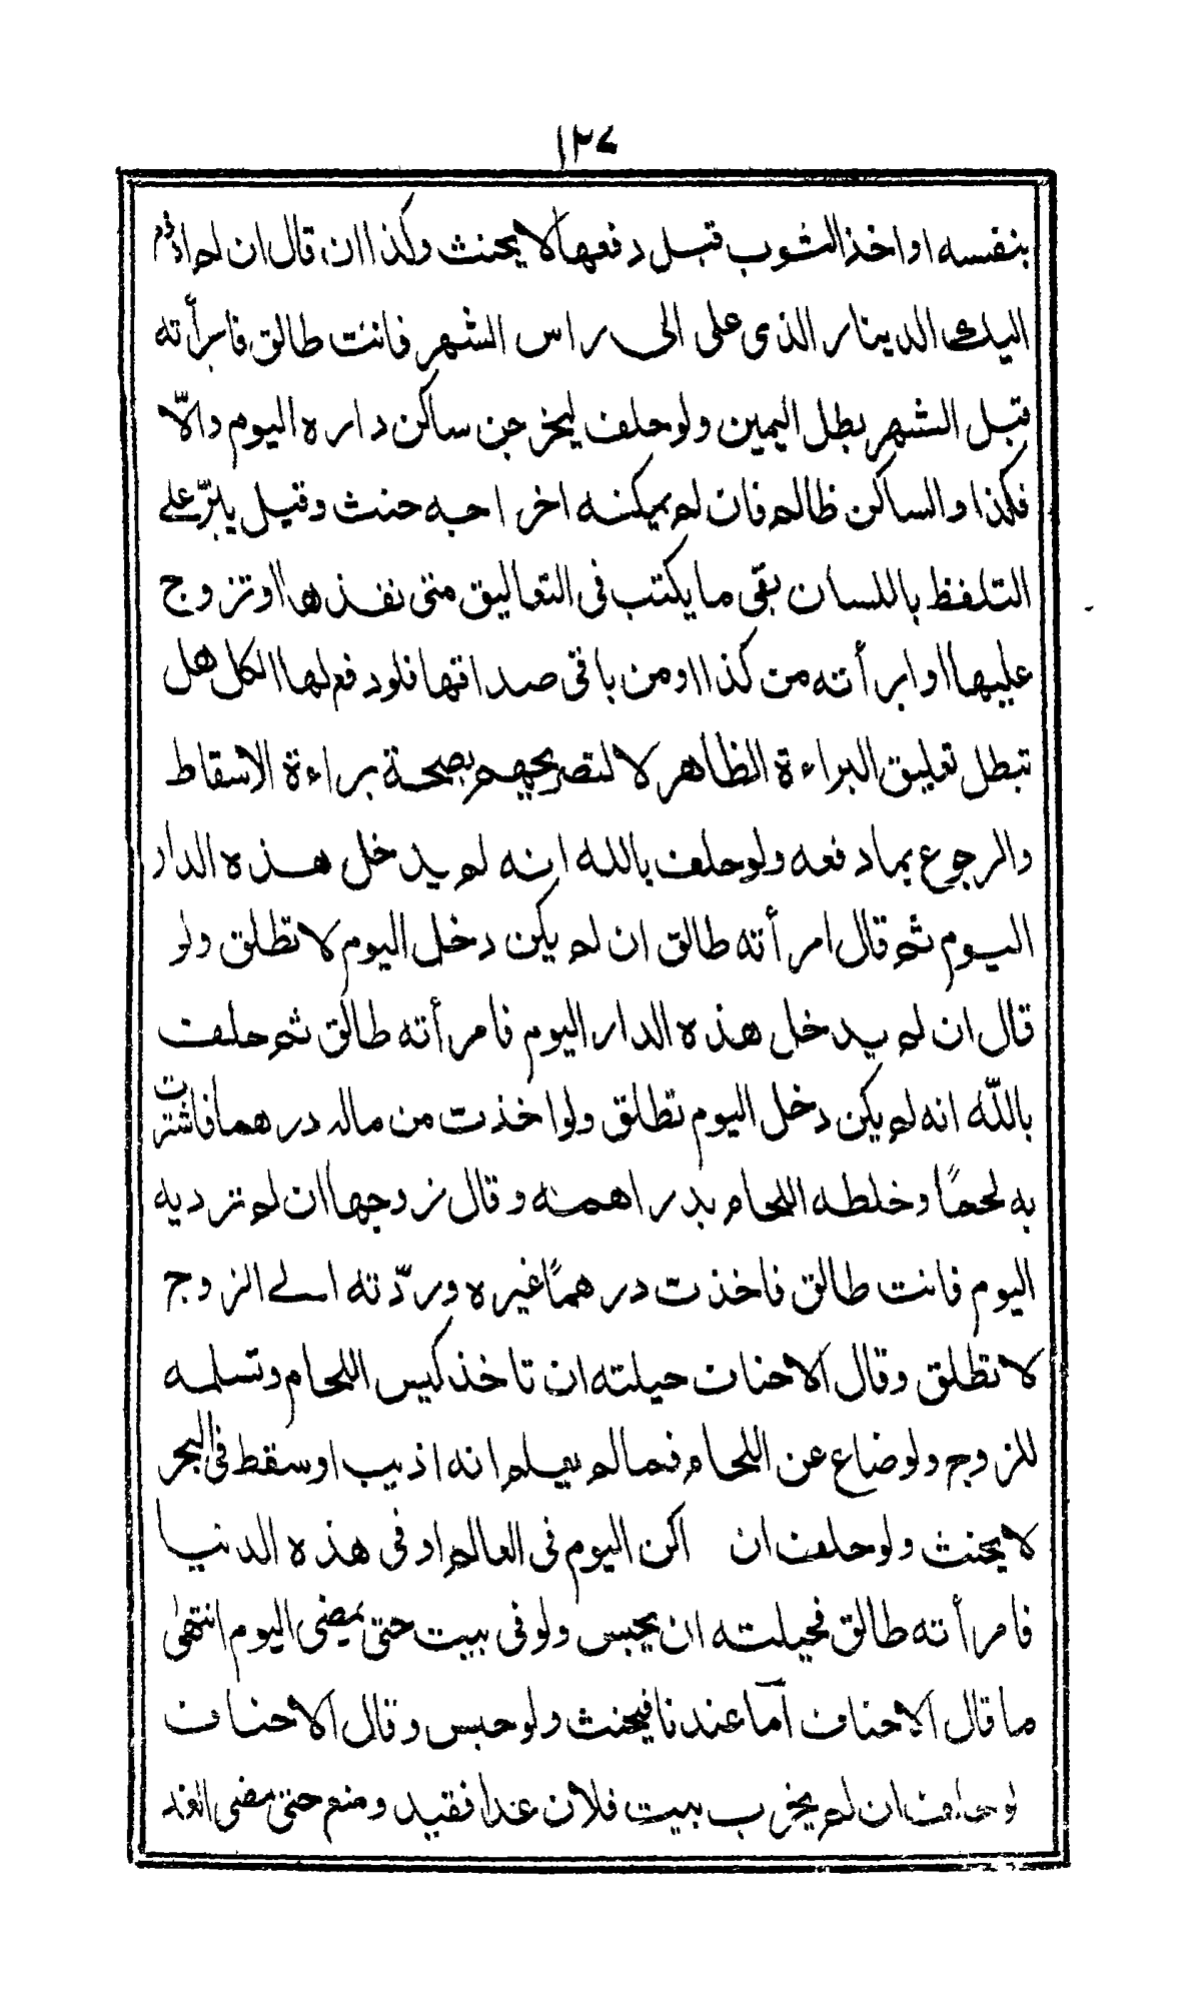 ١٢٧
بنفسه او اخذ الثوب قبل دفعها لا يحنث وكذا ان قال ان لم ادفع
اليك الدينار الذى على الى راس الشهر فانت طالق فابرأته
قبل الشهر بطل اليمين ولو حلف ليخرجن ساكن داره اليوم والّا
فكذا والساكن ظالم فان لم يمكنه اخراجه حنث وقيل يبرّ على
التلفظ باللسان بقى ما يكتب فى التعاليق متى نفذها او تزوج
عليها او ابرأته من كذا او من باقى صداقها فلو دفع لها الكل هل
تبطل تعليق البراءة الظاهر لا لتصريحهم بصحة براءة الاسقاط
والرجوع بما دفعه ولو حلف بالله انه لم يدخل هذه الدار
اليوم ثم قال امرأته طالق ان لم يكن دخل اليوم لا تطلق ولو
قال ان لم يدخل هذه الدار اليوم فامرأته طالق ثم حلف
باللّه انه لم يكن دخل اليوم تطلق ولو اخذت من ماله درهما فاشترت
به لحمًا وخلطه اللحام بدراهمه وقال زوجها ان لم ترديه
اليوم فانت طالق فاخذت درهمًا غيره وردّته الى الزوج
لا تطلق وقال الاحناف حيلته ان تاخذ كيس اللحام وتسلمه
للزوج ولو ضاع عن اللحام فما لم يعلم انه اذيب او سقط فى البحر
لا يحنث ولو حلف ان اكن اليوم فى العالم او فى هذه الدنيا
فامرأته طالق فحيلته ان يحبس ولو فى بيت حتى يمضى اليوم انتهى
ما قال الاحناف امّا عندنا فيحنث ولو حبس وقال الاحناف
لو حلف ان لم يخرب بيت فلان غدا فقيد ومنع حتى مضى الغد